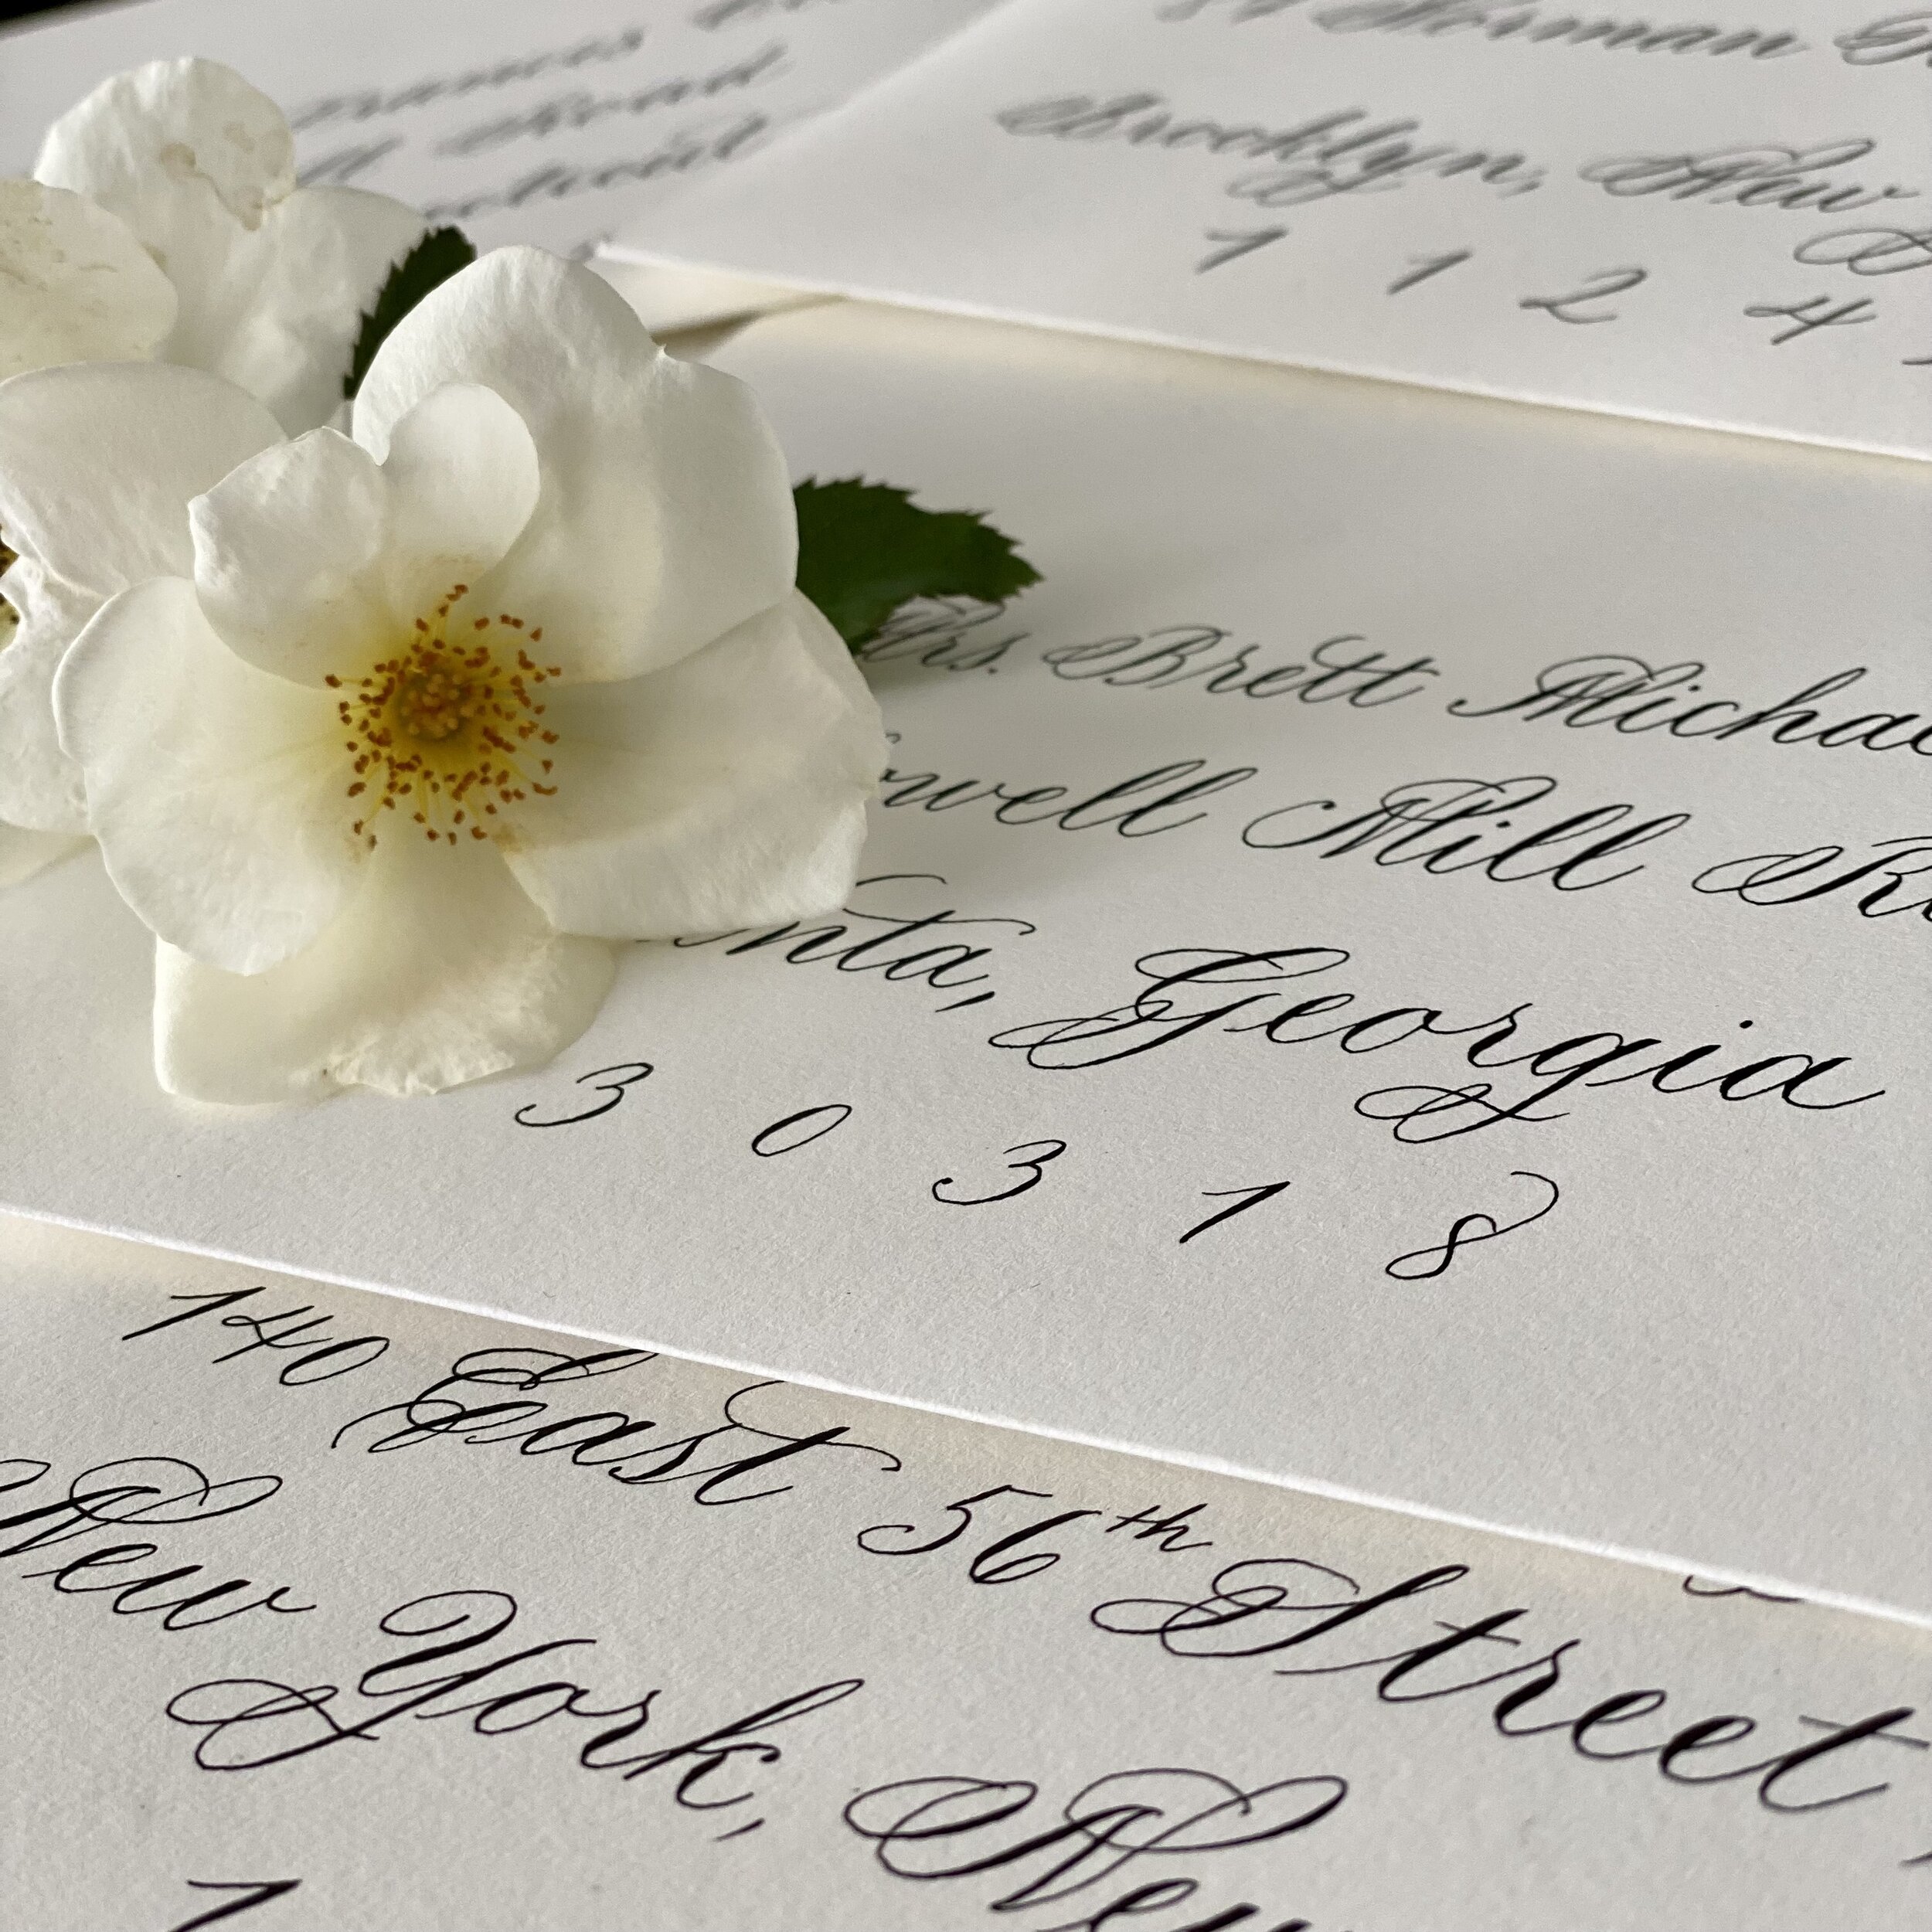 Road
Norman
Brooklyn, New
1 1 2 4
Mrs. Brett Michae
owell Mill R
nta, Georgia
3 0 3 1 8
140 East 56th Street,
New York, New
1